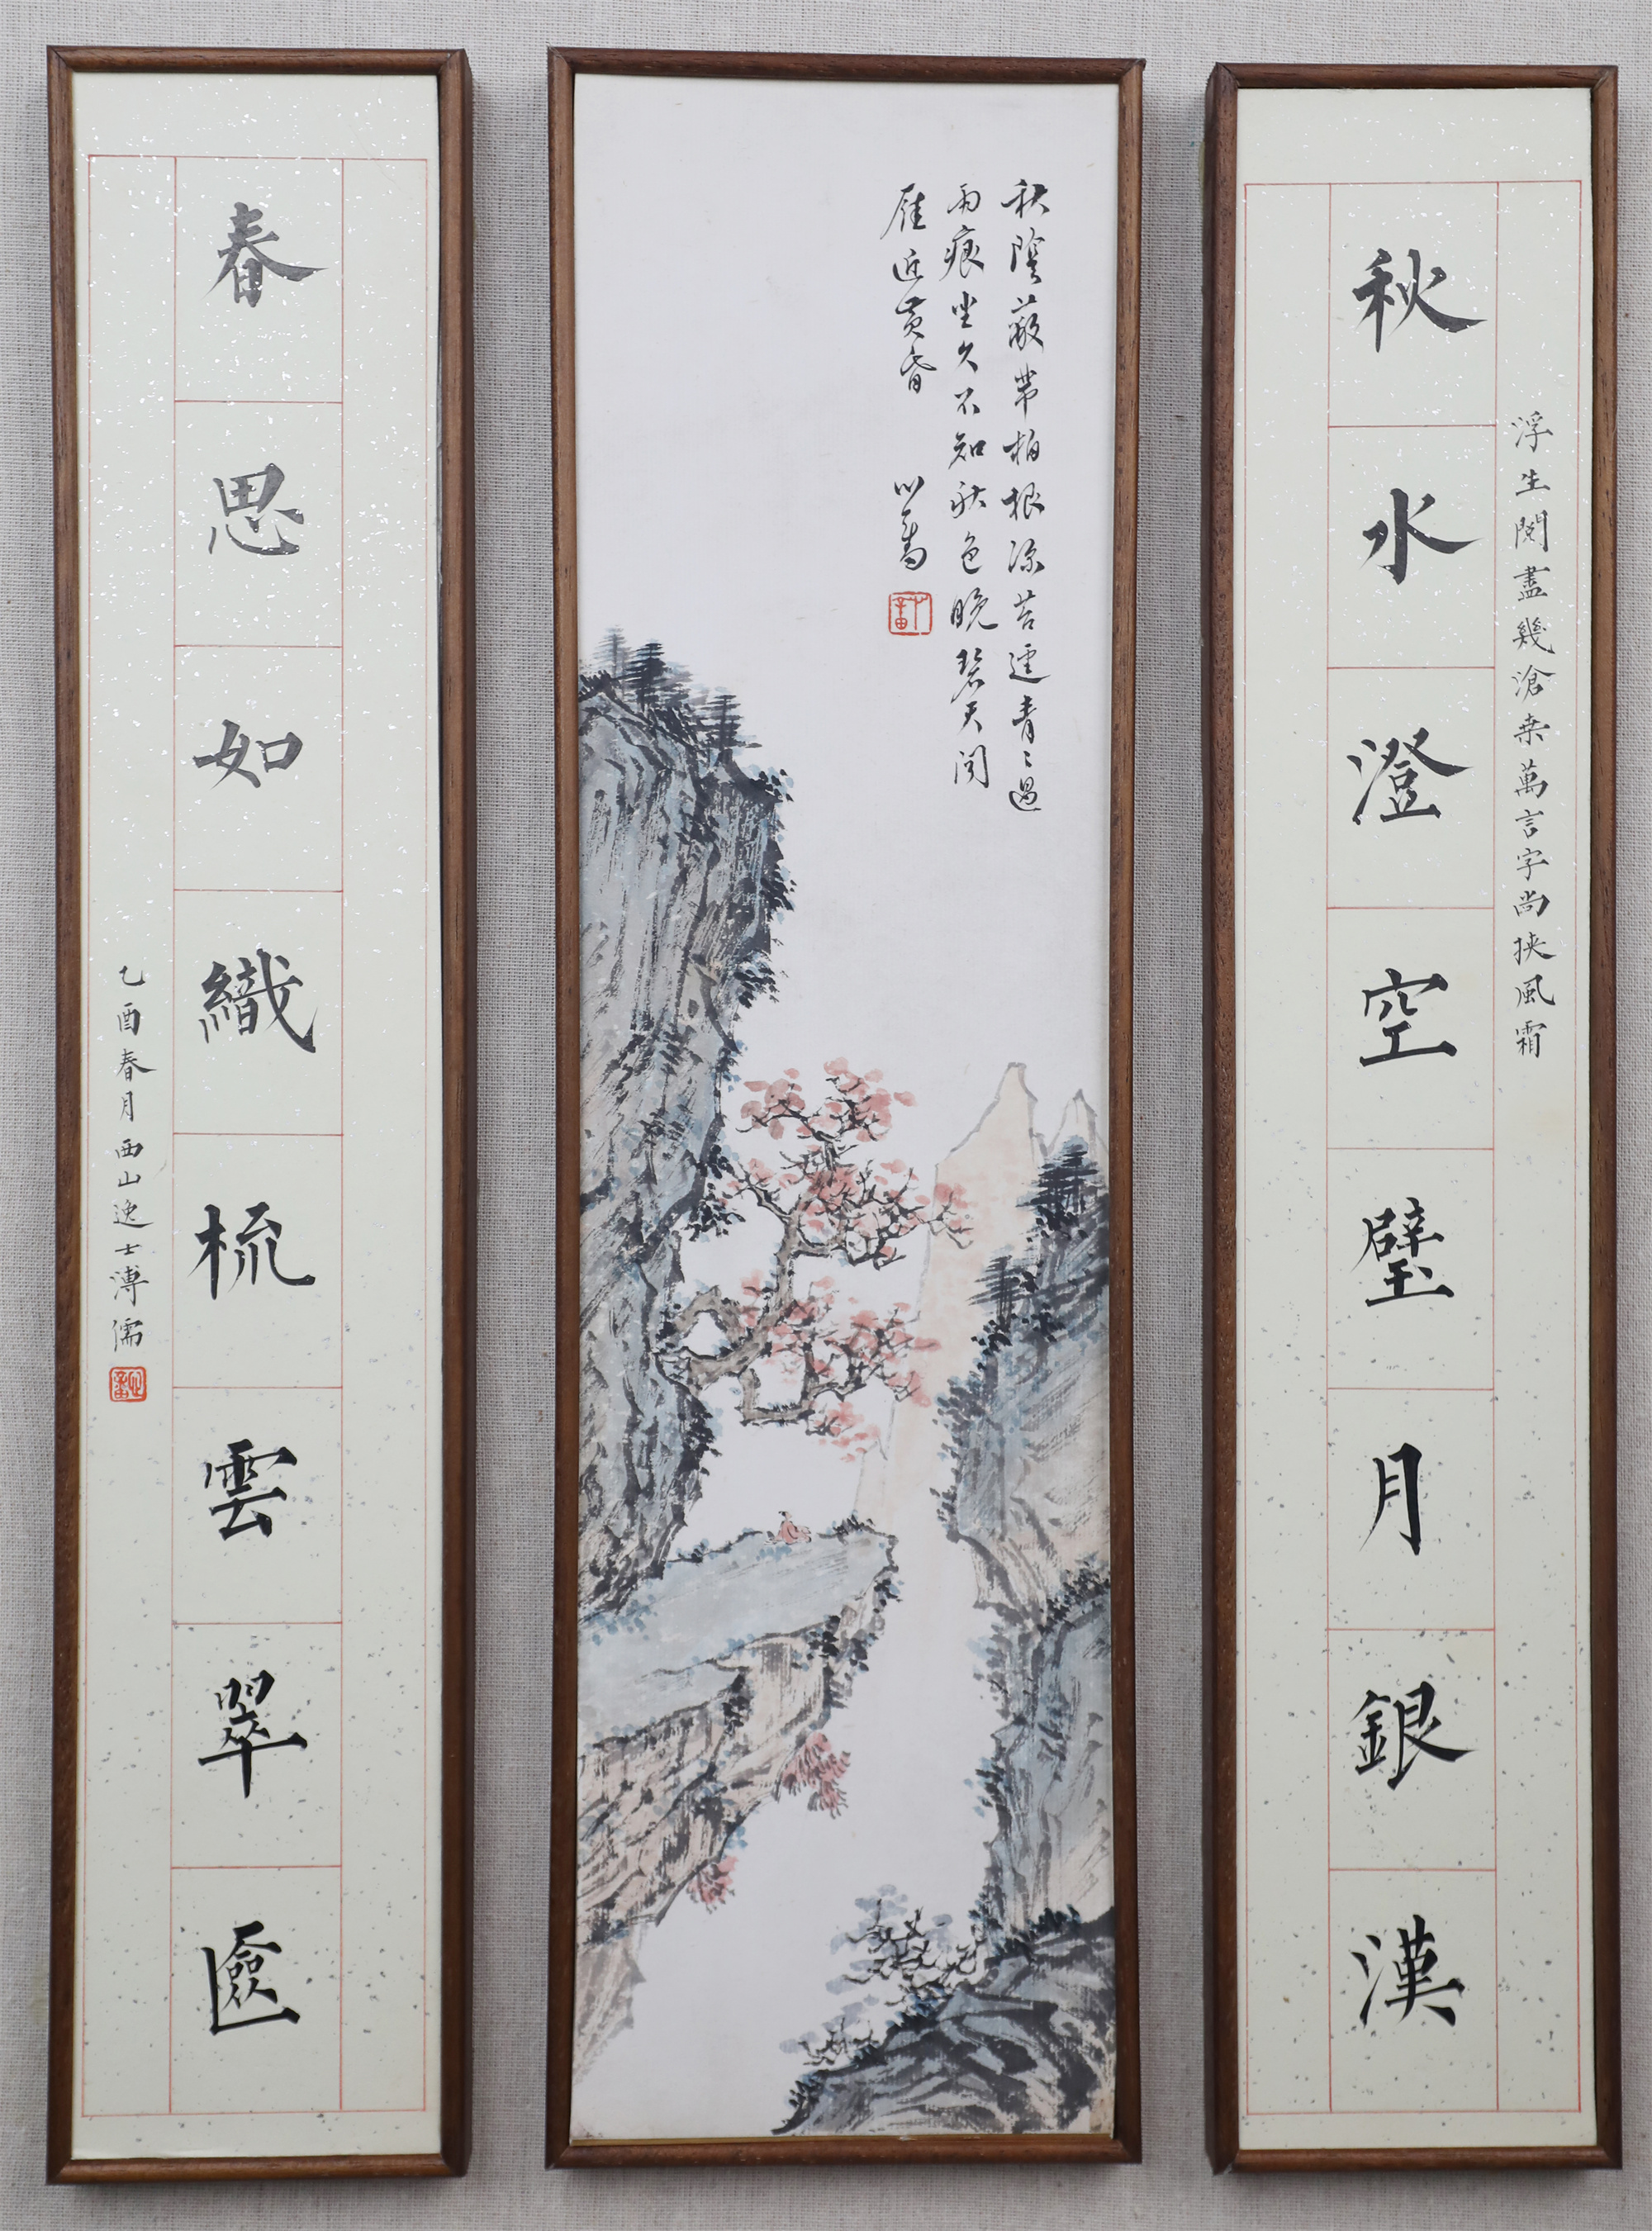 浮生閱盡幾滄桒萬言字尚挾風霜
秋水澄空璧月銀漢
秋陰蔽芾柏根涼苔逕青〻過
雨痕坐久不知秋色晚碧天聞
雁近黃昏 心畬
春思如織梳雲翠匲
乙酉春月西山逸士溥儒